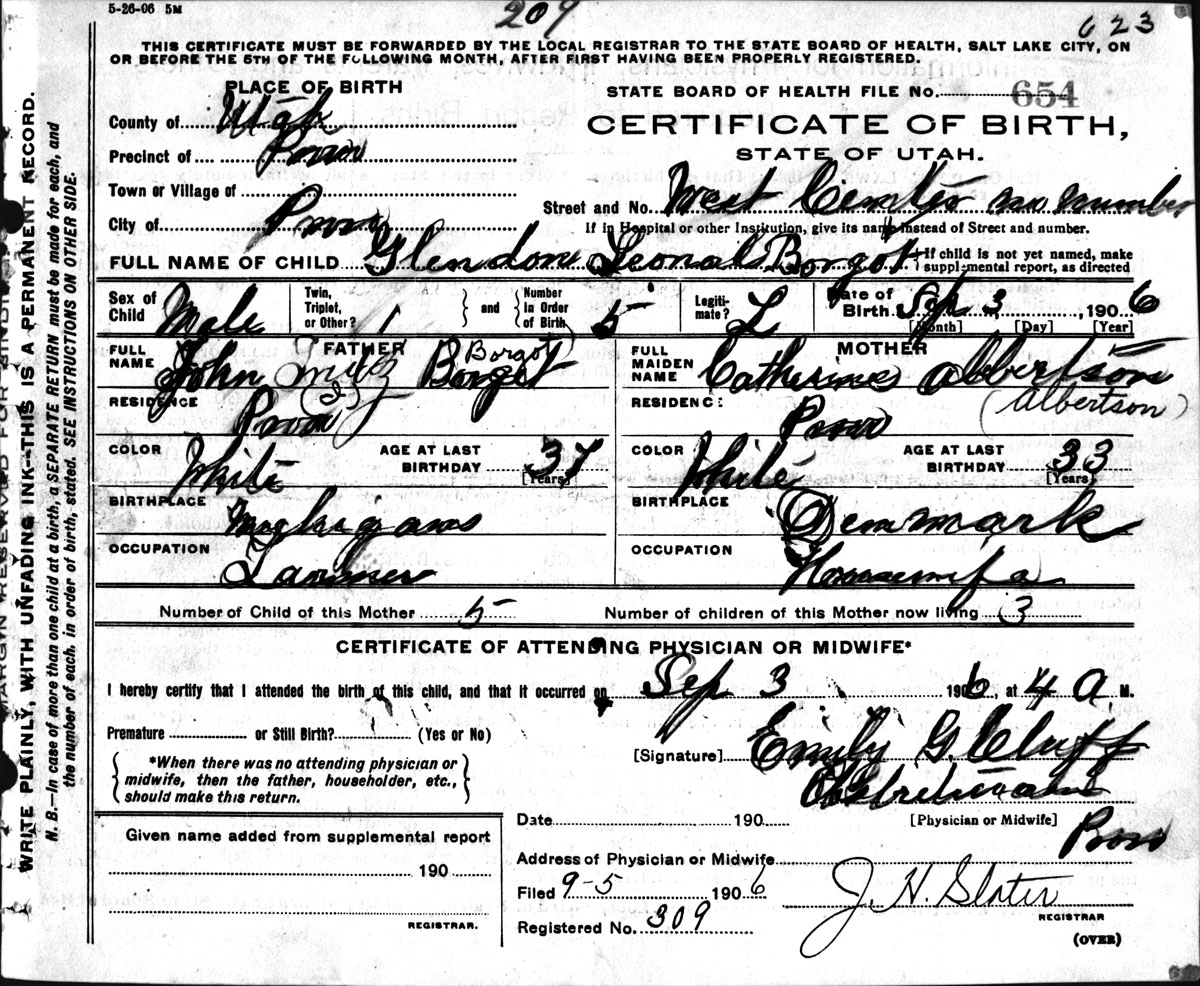 5-26-06 5M
209
623
THIS CERTIFICATE MUST BE FORWARDED BY THE LOCAL REGISTRAR TO THE STATE BOARD OF HEALTH, SALT LAKE CITY, ON
OR BEFORE THE 5TH OF THE FOLLOWING MONTH, AFTER FIRST HAVING BEEN PROPERLY REGISTERED.
PLACE OF BIRTH
STATE BOARD OF HEALTH FILE NO. 654
County of Utah
CERTIFICATE OF BIRTH,
STATE OF UTAH.
Precinct of Provo
Town or Village of
Street and No. West Center no number
City of Provo
If in Hospital or other Institution, give its name instead of Street and number.
FULL NAME OF CHILD Glendon Leonal Borgot
If child is not yet named, make
supplemental report, as directed
Sex of Child Male
Twin, Triplet, or Other? 1
and Number in Order of Birth 5
Legitimate? L
Date of Birth Sep 3, 1906
[Month] [Day] [Year]
FATHER
MOTHER
FULL NAME John Borgot
Borgot
FULL MAIDEN NAME Catherine Abbertson
(Albertson)
RESIDENCE Provo
RESIDENCE Provo
COLOR White
AGE AT LAST BIRTHDAY 37
[Years]
COLOR White
AGE AT LAST BIRTHDAY 33
[Years]
BIRTHPLACE
BIRTHPLACE Denmark
OCCUPATION
OCCUPATION Housewife
Number of Child of this Mother 5
Number of children of this Mother now living 3
CERTIFICATE OF ATTENDING PHYSICIAN OR MIDWIFE*
I hereby certify that I attended the birth of this child, and that it occurred on Sep 3 1906, at 4 A M.
Premature or Still Birth? (Yes or No)
[Signature] Emily G. Cluff
*When there was no attending physician or
midwife, then the father, householder, etc.,
should make this return.
Obstretician
Date 190
[Physician or Midwife]
Given name added from supplemental report
190
REGISTRAR.
Address of Physician or Midwife Provo
Filed 9-5 1906
J. H. Slater
REGISTRAR
Registered No. 309
(OVER)
MARGIN RESERVED FOR BINDING
WRITE PLAINLY, WITH UNFADING INK--THIS IS A PERMANENT RECORD.
N. B.—In case of more than one child at a birth, a SEPARATE RETURN must be made for each, and
the number of each, in order of birth, stated. SEE INSTRUCTIONS ON OTHER SIDE.